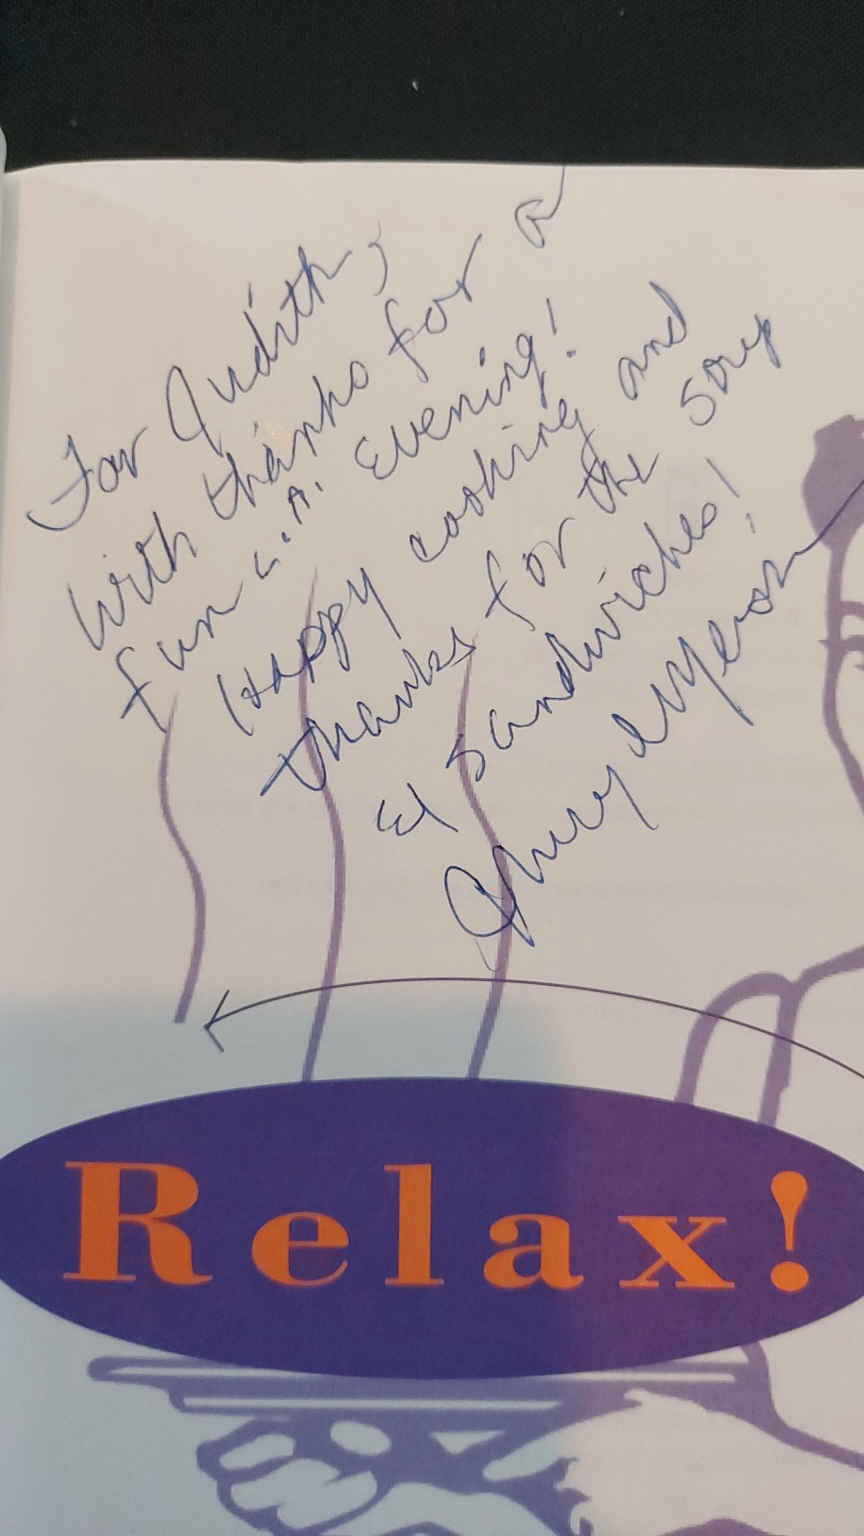 For Judith,
With thanks for a
fun L.A. Evening!
Happy cooking and
thanks for the soup
& sandwiches!
Relax!